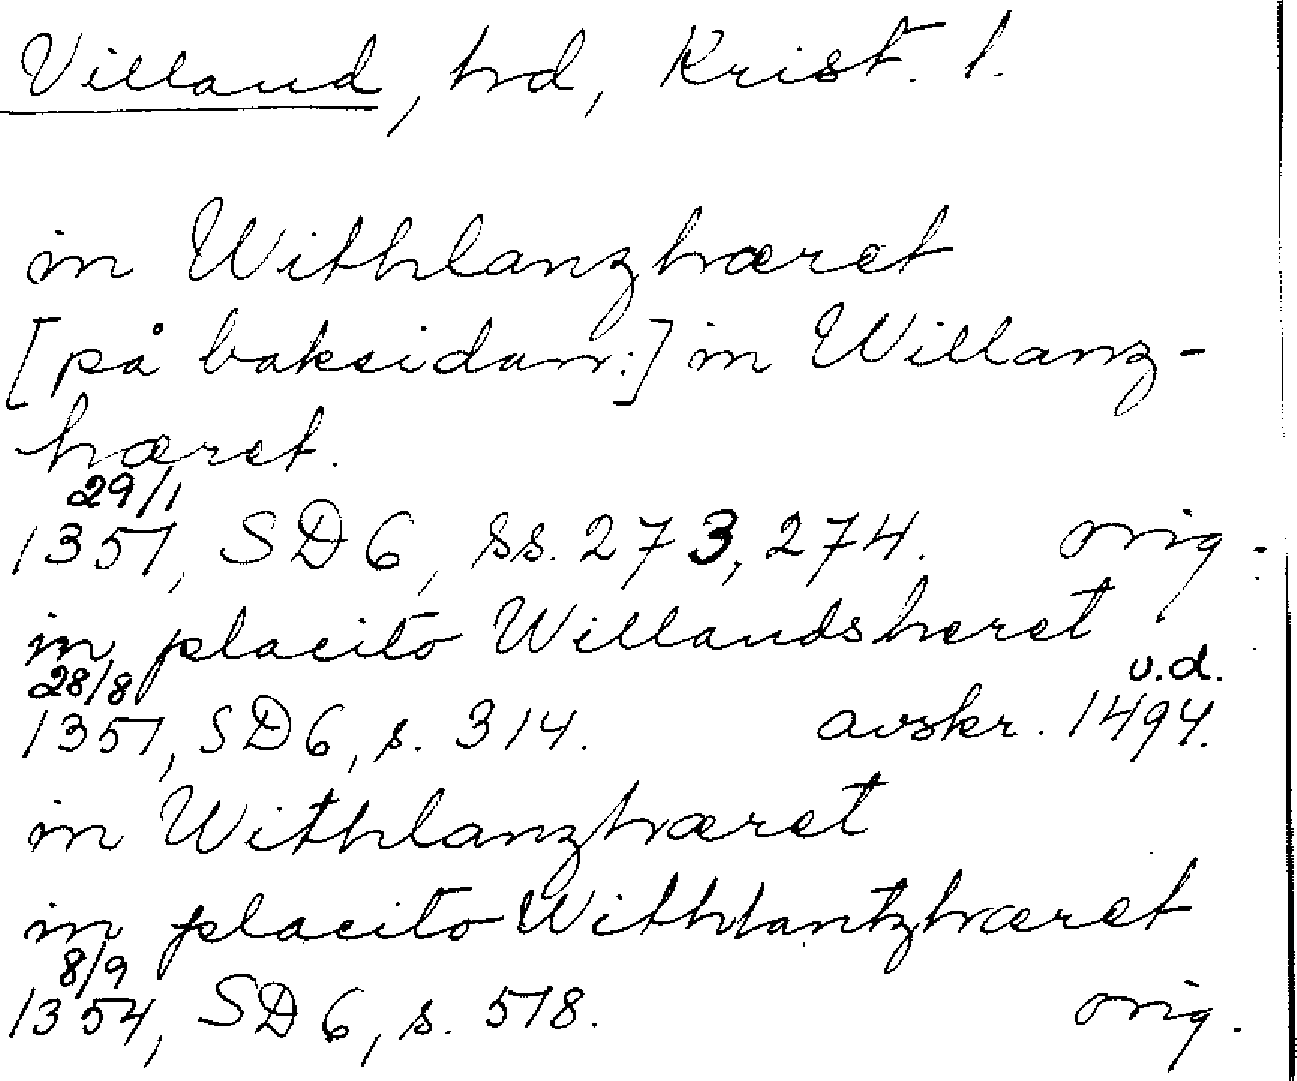 Villand, hd, Krist. l.
in Withlanzhæret
[på baksidan:] in Willanz-
hæret.
29/1
1351, SD 6, ss. 273, 274. orig.
in placito Willandsheret
28/8 u.d.
1351, SD 6, s. 314. avskr. 1494.
in Withlanzhæret
in placito Withlantzhæret
8/9
1354, SD 6, s. 518. orig.